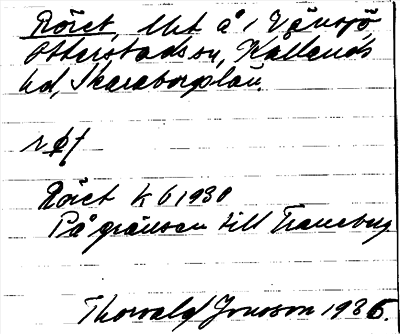 Röret, Mt å i Vänsjö,
Otterstads sn, Kållands
hd, Skaraborgs län.
Röret k 6 1930
På gränsen till Traneberg
Thorvald Jonsson 1936.